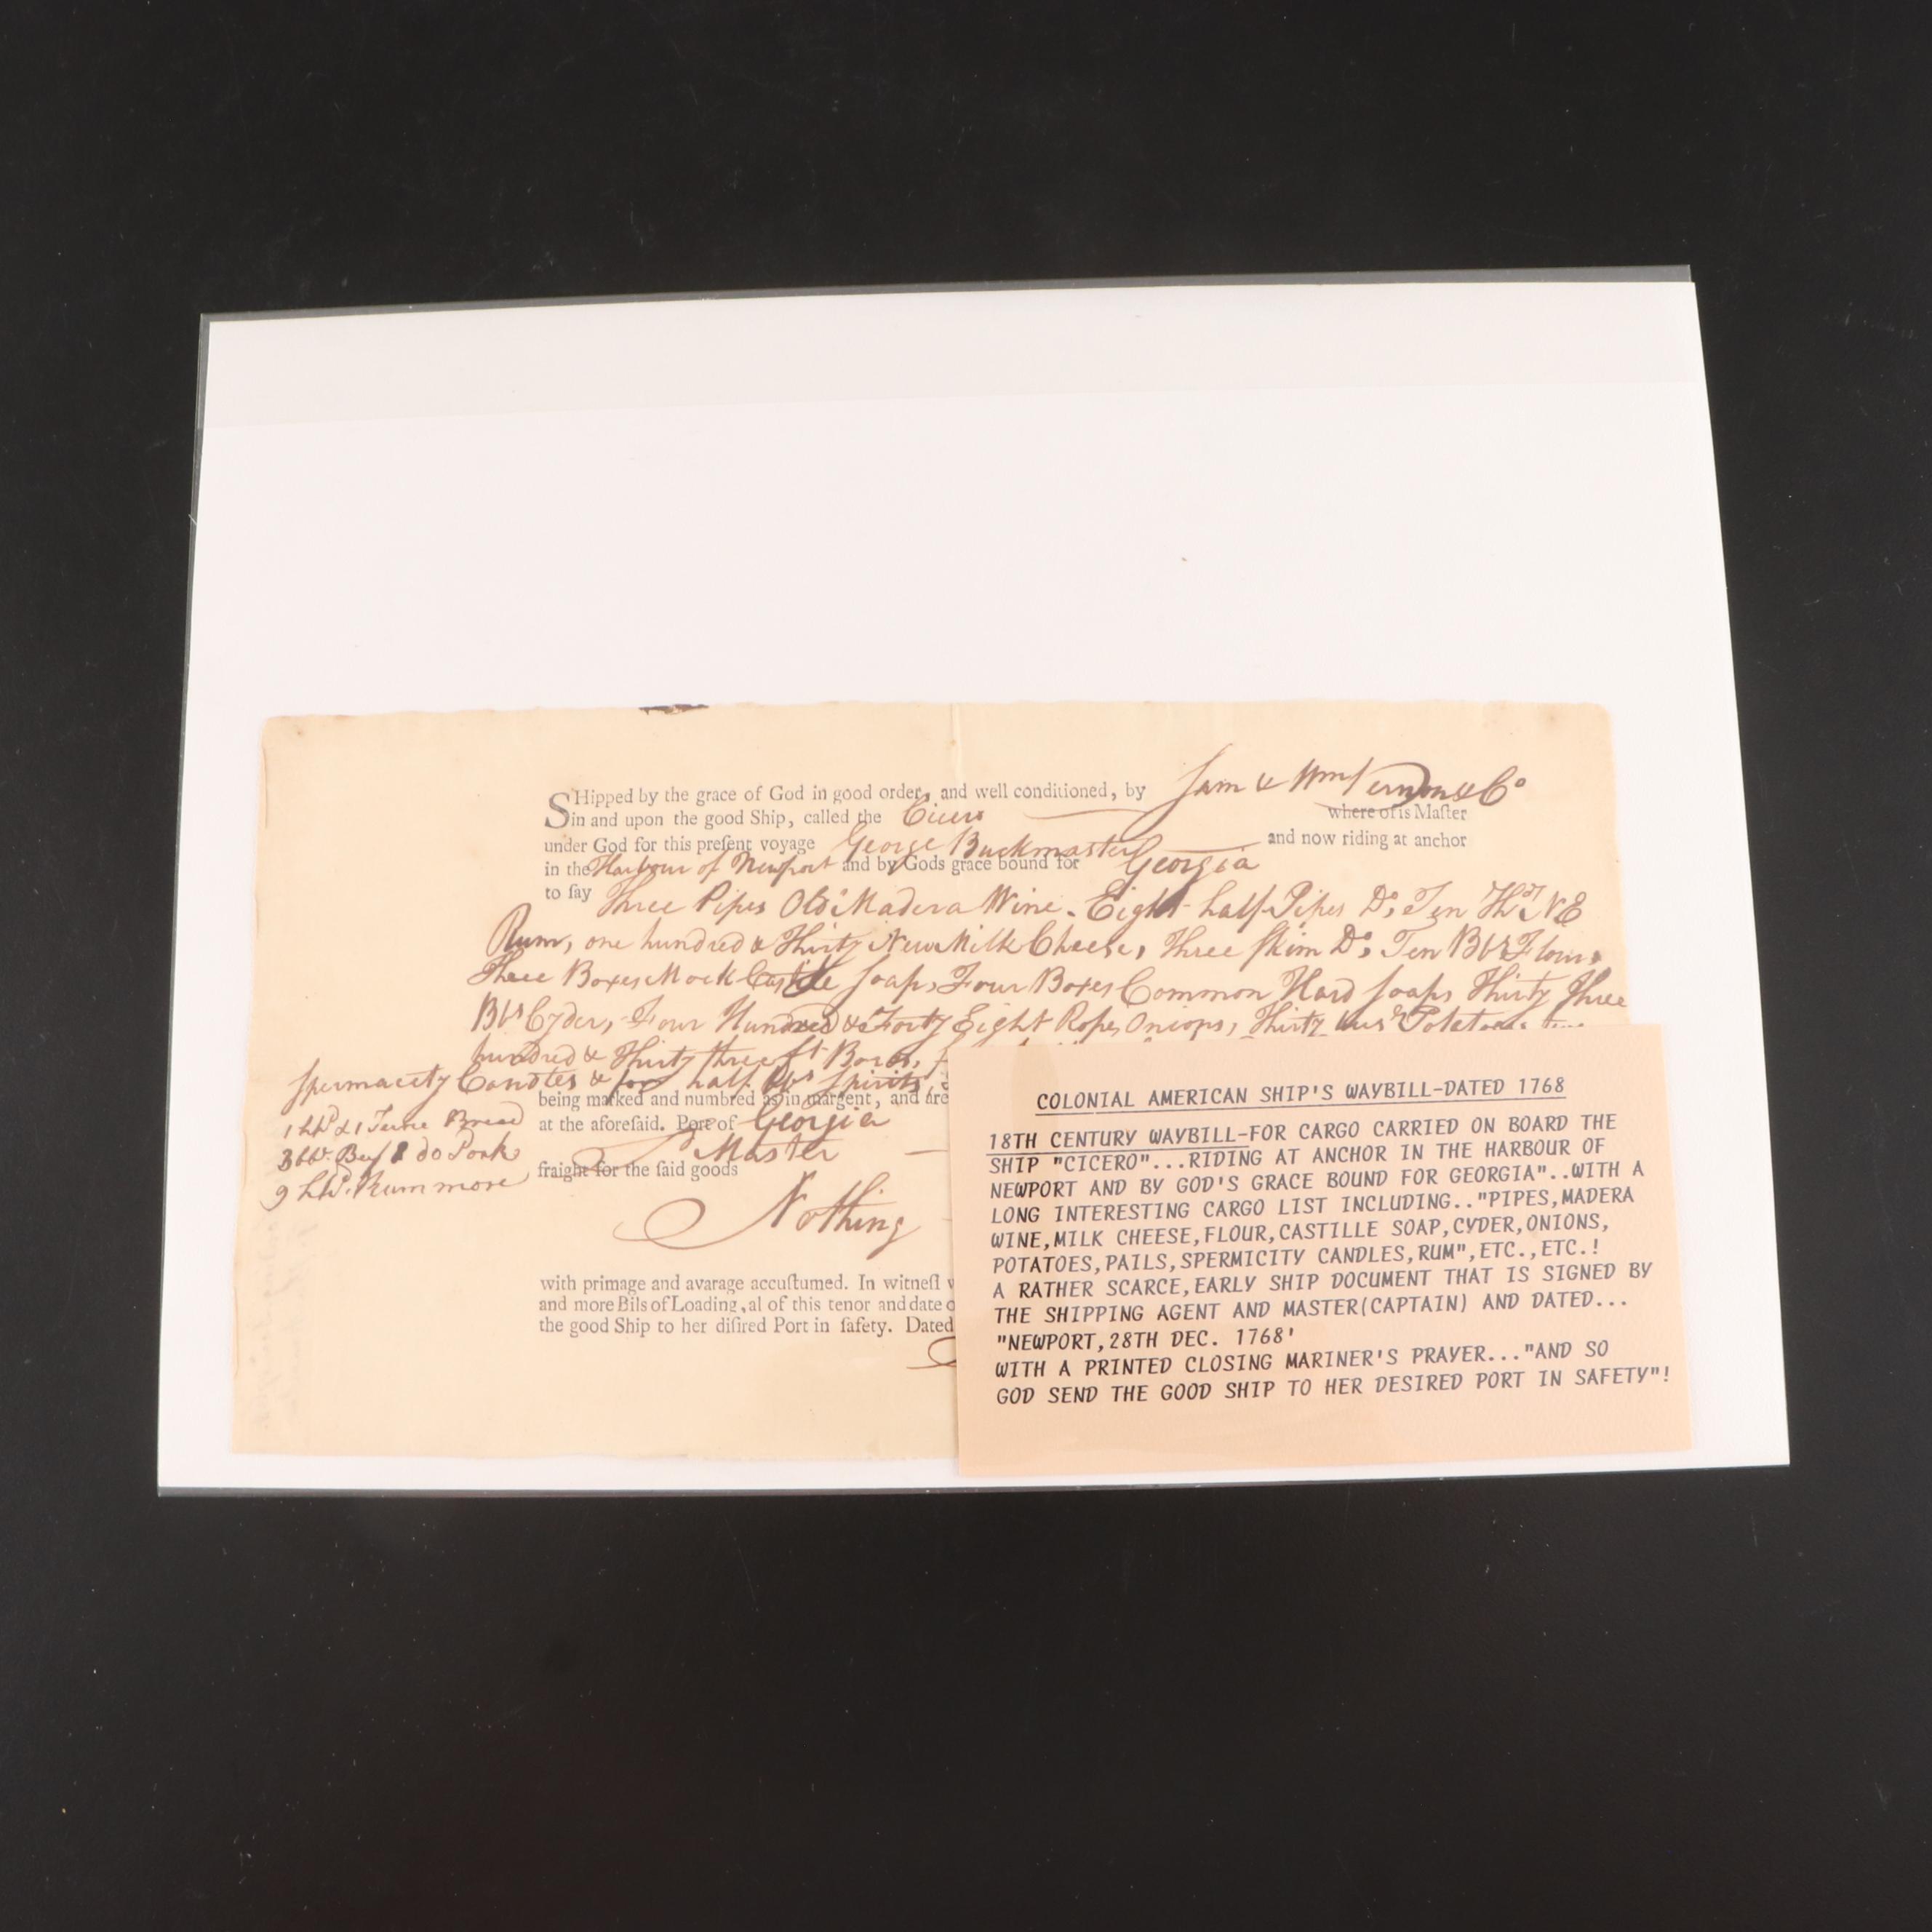 SHipped by the grace of God in good order, and well conditioned, by Sam & Wm Vernon & Co
in and upon the good Ship, called the Cicero where of is Maſter
under God for this preſent voyage George Buckmaster and now riding at anchor
in the Harbour of Newport and by Gods grace bound for Georgia
to ſay Three Pipes Old Madera Wine. Eight half Pipes Do, Ten Hhds NE
Rum, one hundred & Thirty New Milk Cheese, Three Skim Do, Ten Bbls Flour,
Three Boxes Mock Castile Soap, Four Boxes Common Hard Soap, Thirty Three
Bbls Cyder, Four Hundred & Forty Eight Ropes Onions, Thirty Potatoes
hundred & Thirty three ft
Spermacity Candles & four half Bbls Spirits,
being marked and numbred as in margent, and are
1 hhd & 1 Bread
at the aforeſaid. Port of Georgia
3 bbls Beef 8 do Pork
Master
9 hhds Rum more
fraight for the ſaid goods
Nothing
with primage and avarage accuſtumed. In witneſſ
and more Bils of Loading, al of this tenor and date
the good Ship to her diſired Port in ſafety. Dated
COLONIAL AMERICAN SHIP'S WAYBILL-DATED 1768
18TH CENTURY WAYBILL-FOR CARGO CARRIED ON BOARD THE
SHIP "CICERO"...RIDING AT ANCHOR IN THE HARBOUR OF
NEWPORT AND BY GOD'S GRACE BOUND FOR GEORGIA"..WITH A
LONG INTERESTING CARGO LIST INCLUDING.."PIPES,MADERA
WINE,MILK CHEESE,FLOUR,CASTILLE SOAP,CYDER,ONIONS,
POTATOES,PAILS,SPERMICITY CANDLES,RUM",ETC.,ETC.!
A RATHER SCARCE,EARLY SHIP DOCUMENT THAT IS SIGNED BY
THE SHIPPING AGENT AND MASTER(CAPTAIN) AND DATED...
"NEWPORT,28TH DEC. 1768'
WITH A PRINTED CLOSING MARINER'S PRAYER..."AND SO
GOD SEND THE GOOD SHIP TO HER DESIRED PORT IN SAFETY"!